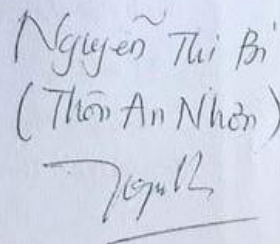 Nguyễn Thi Bi
(Thôn An Nhơn)